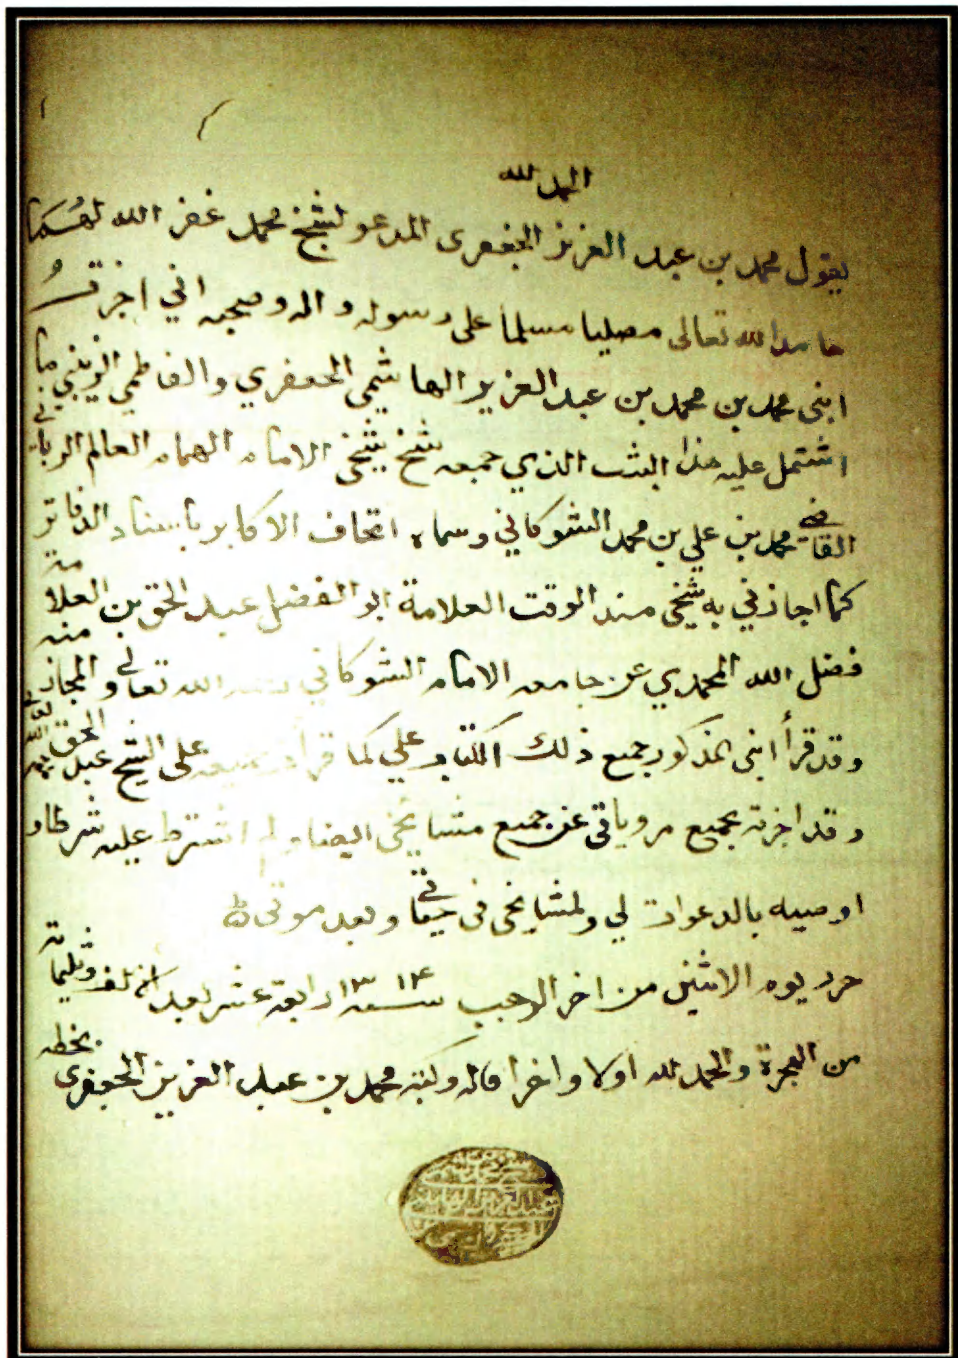 الحمد لله
يقول محمد بن عبد العزيز الجعفرى المدعو لشيخ محمد غفر الله لهما
حامدا لله تعالى مصليا مسلما على رسوله واله وصحبه اني اجزت
ابنى محمد بن محمد بن عبد العزيز الهاشمي الجعفري والفاطمي الزينبي بما
اشتمل عليه هذا الثبت الذي جمعه شيخ شيخي الامام الهمام العالم الرباني
القاضي محمد بن علي بن محمد الشوكاني وسماه اتحاف الاكابر باسناد الدفاتر
كما اجازني به شيخي مسند الوقت العلامة ابو الفضل عبد الحق بن العلامة
فضل الله المحمدي عن جامعه الامام الشوكاني الله تعالى والمجاز منه
وقد قرأ ابنى المذكور جميع ذلك الكتاب علي كما قرأت جميعه على الشيخ عبد الحق
وقد اجزته بجميع مروياتى عن جميع مشايخى ايضا ولم اشترط عليه شرطا و
اوصيه بالدعوات لي ولمشايخى فى حيقاتى وبعد موتى
حرر يوم الاثنين من اخر الرجب سنه ۱۳۱۴ رابعة عشر بعد الف وثلثمائة
من الهجرة والحمد لله اولا واخرا قاله وكتبه محمد بن عبد العزيز الجعفرى بخطه